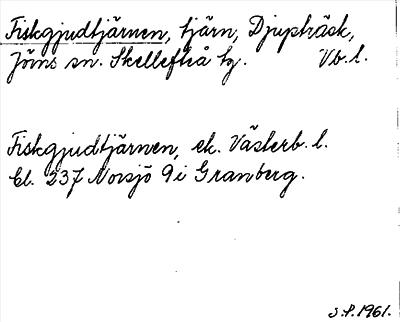 Fiskgjudtjärnen, tjärn, Djupträsk,
Jörns sn. Skellefteå tg. Vb. l.
Fiskgjudtjärnen, ek. Västerb. l.
Bl. 237 Norsjö 9 i Granberg.
S.P. 1961.